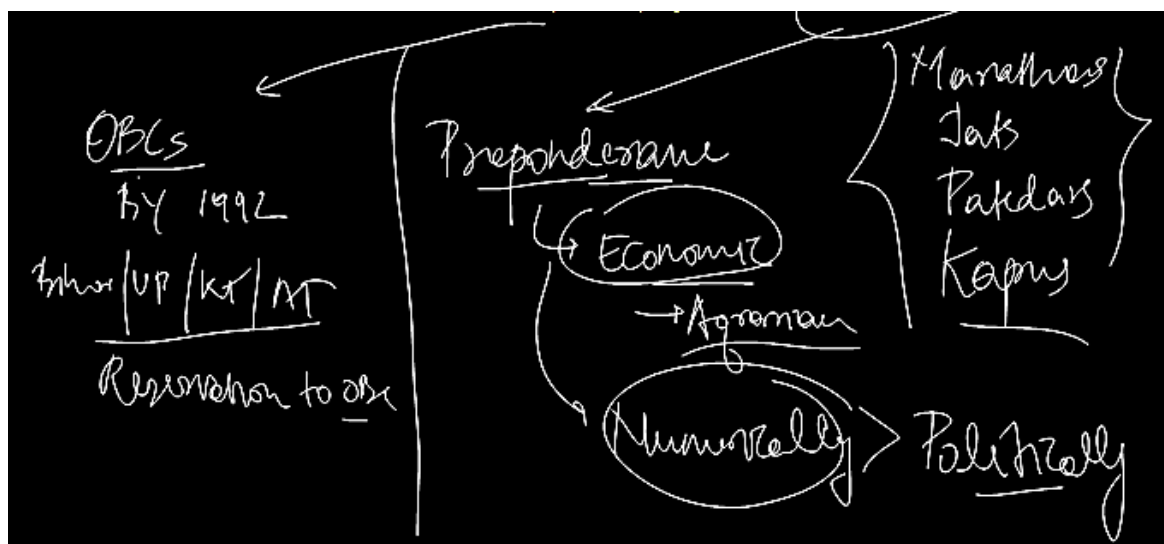 OBCs
BY 1992
Bihar | UP | KT | AT
Reservation to OBC
Preponderane
Economic
→ Agrarian
Numerically
Politically
Marathas
Jats
Patidars
Kapus